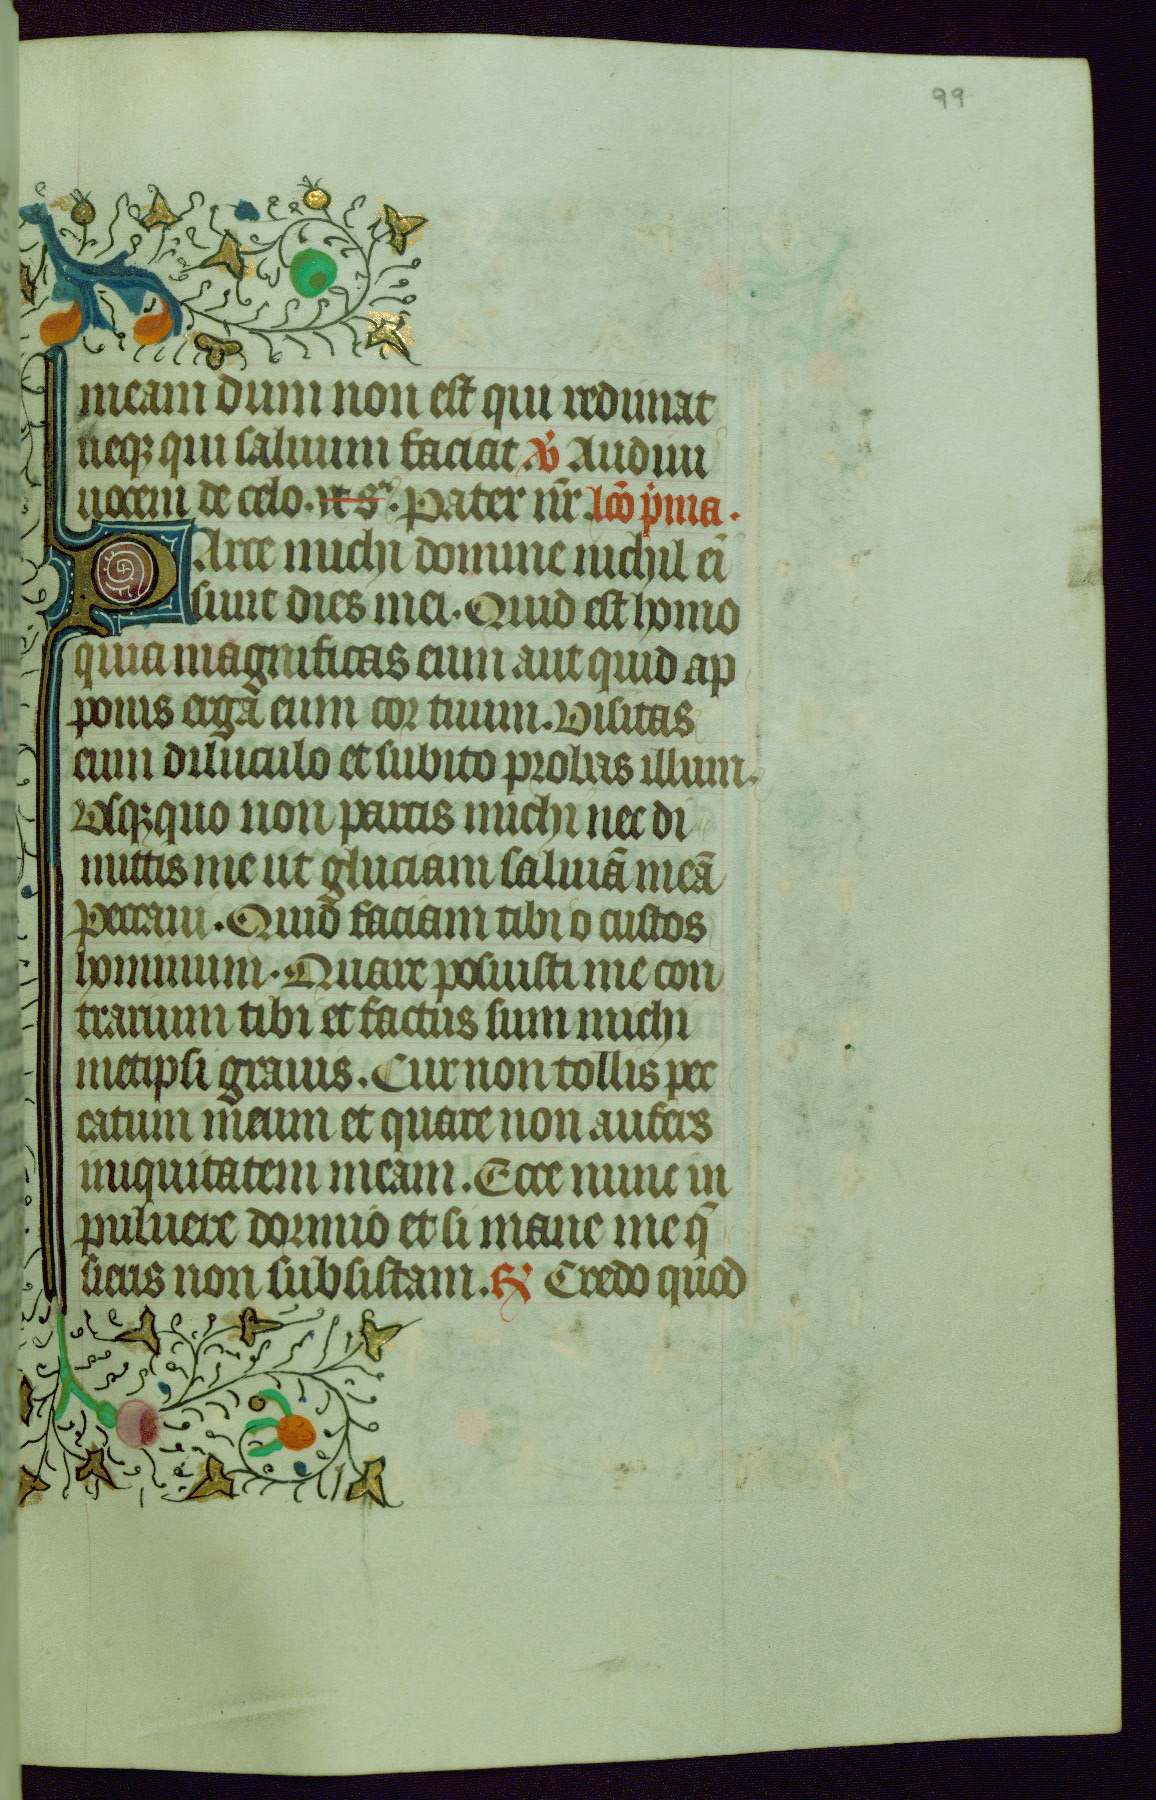 99
meam dum non est qui redimat
neqꝫ qui saluum faciat. ℣ Audiui
uocem de celo. et sꝰ. Pater nr̄. lcō p̄ma.
Parce michi domine nichil ei̅
sunt dies mei. Quid est homo
quia magnificas eum aut quid ap
ponis ergā eum cor tuum. Visitas
eum diluculo et subito probas illum.
Vsqꝫ quo non parcis michi nec di
mittis me ut gluciam saliuā meā
Peccaui. Quid faciam tibi o custos
hominum. Quare posuisti me con
trarium tibi et factus sum michi
metipsi grauis. Cur non tollis pec
catum meum et quare non aufers
iniquitatem meam. Ecce nunc in
puluere dormio et si mane me q̄
sieris non subsistam. ℟ Credo quod